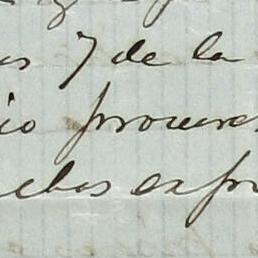 as 7 de la
io procura
chos expr